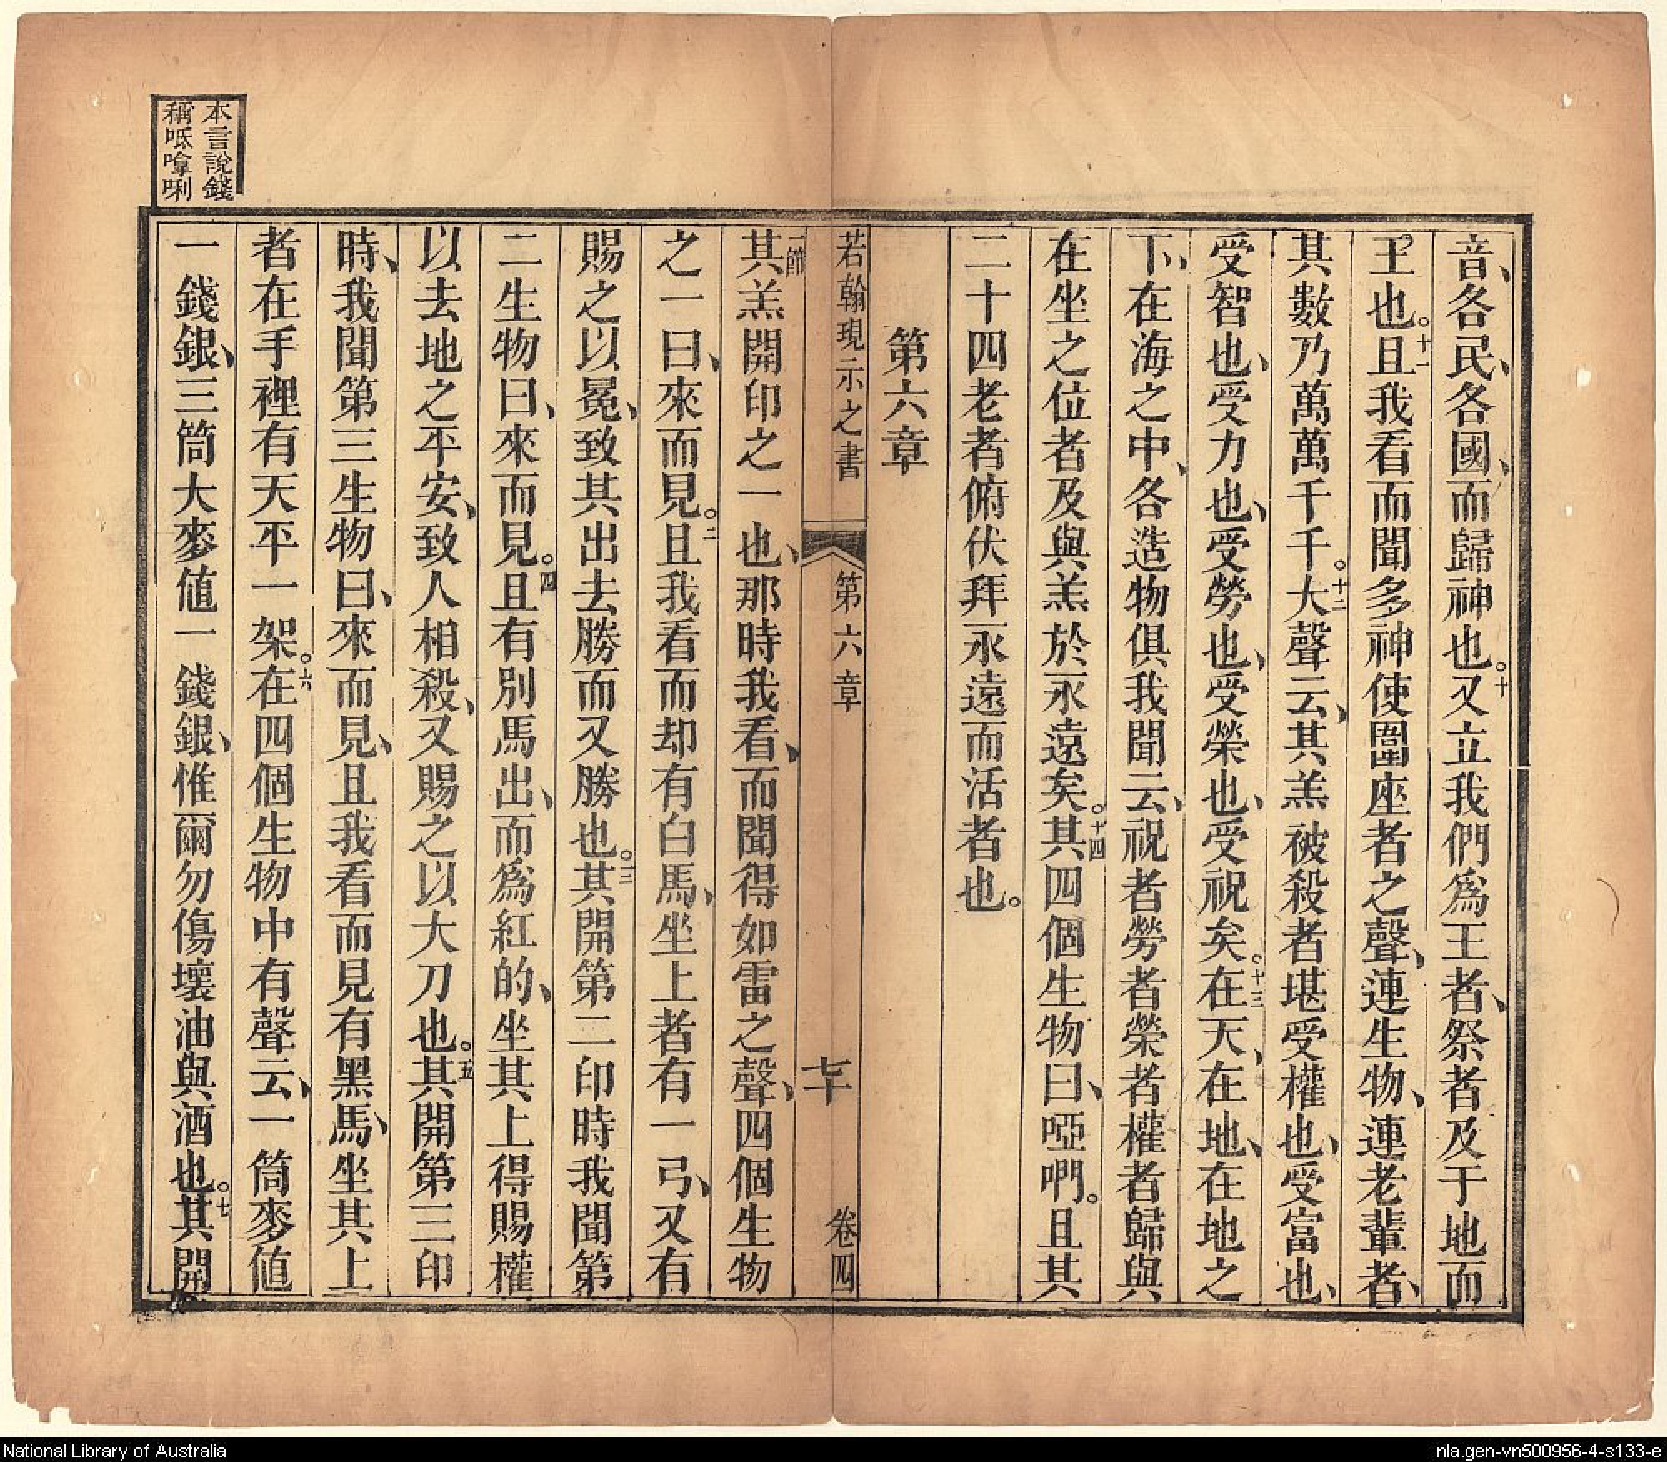 音、各民、各國、而歸神也。十又立我們爲王者、祭者及于地而
王也。十一且我看而聞多神使圍座者之聲、連生物、連老輩者、
其數乃萬萬千千。十二大聲云、其羔被殺者堪受權也、受富也、
受智也、受力也、受勞也、受榮也、受祝矣。十三在天、在地、在地之
下、在海之中、各造物俱我聞云、祝者勞者榮者權者歸與
在坐之位者及與羔於永遠矣。十四其四個生物曰、啞們。且其
二十四老者俯伏拜永遠而活者也。
第六章
若翰現示之書 第六章 七十 卷四
一節其羔開印之一也、那時我看、而聞得如雷之聲、四個生物
之一曰、來而見。二且我看而却有白馬、坐上者有一弓、又有
賜之以冕、致其出去勝而又勝也。三其開第二印時我聞第
二生物曰、來而見。四且有別馬出、而爲紅的、坐其上得賜權
以去地之平安、致人相殺、又賜之以大刀也。五其開第三印
時、我聞第三生物曰、來而見、且我看而見有黑馬、坐其上
者在手裡有天平一架。六在四個生物中有聲云、一筒麥値
一錢銀、三筒大麥値一錢銀、惟爾勿傷壞油與酒也。七其開
本言說錢
稱呧喰唎
National Library of Australia
nla.gen-vn500956-4-s133-e